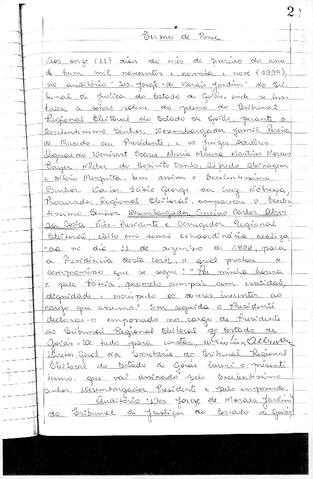 2
Termo de Posse
Aos onze (11) dias do mês de janeiro do ano
de hum mil novecentos e noventa e nove (1999),
no auditório "Des. Jorge de Morais Jardim" do Tri-
bunal de Justiça do Estado de Goiás, onde se
a sessão solene do pleno do Tribunal
Regional Eleitoral do Estado de Goiás, perante o
Excelentíssimo Senhor Desembargador Jamil Pereira
de Macedo, seu Presidente, e os juízes
Maria Martins Moraes
do Espírito Santo, Alfredo Abinagem
e Mesquita, bem assim o Excelentíssimo
Senhor Doutor Fábio George da Nóbrega,
Procurador Regional Eleitoral, compareceu o Excelen-
tíssimo Senhor Desembargador Carlos Alves
da Costa, Vice-Presidente e Corregedor Regional
Eleitoral, eleito em sessão extraordinária realiza-
da no dia 11 de dezembro de 1998, para
a Presidência desta Corte, o qual prestou o
compromisso que se segue: "Por minha honra
e pela Pátria, prometo cumprir com exatidão,
dignidade e escrúpulo os deveres inerentes ao
cargo que assumo." Em seguida o Presidente
declarou-o empossado no cargo de Presidente
do Tribunal Regional Eleitoral do Estado de
Goiás. De tudo para constar, eu,
Diretor Geral da Secretaria do Tribunal Regional
Eleitoral do Estado de Goiás lavrei o presente
termo, que vai assinado pelo Excelentíssimo
Senhor Desembargador Presidente e pelo empossado.
Auditório "Des. Jorge de Morais Jardim"
do Tribunal de Justiça do Estado de Goiás